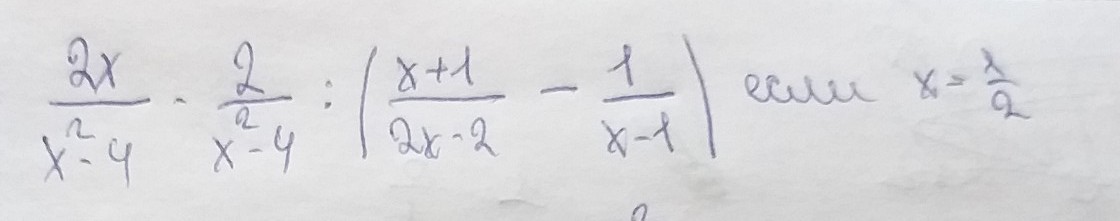 2x/(x²-4) - 2/(x²-4) : ((x+1)/(2x-2) - 1/(x-1)) если x=1/2